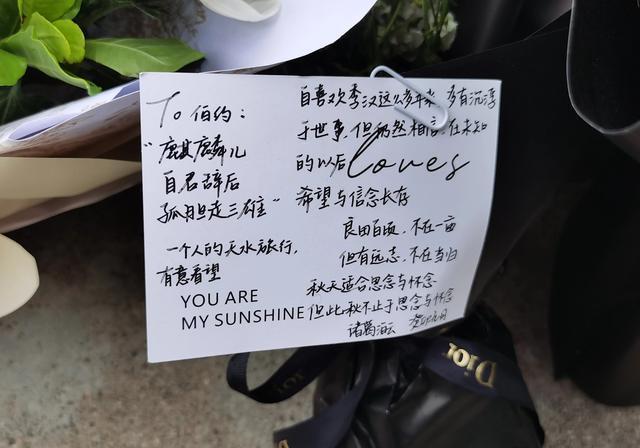 To 伯约：
"麒麟儿
自君辞后
孤胆走三雄"
一个人的天水旅行，
有意看望
YOU ARE
MY SUNSHINE
自喜欢季汉这么多年来，多有沉浮
于世事，但仍然相信，在未知
的以后
loves
希望与信念长存
良田百顷，不在一亩
但有远志，不在当归
秋天适合思念与怀念
但此秋不止于思念与怀念
诸葛
Dior